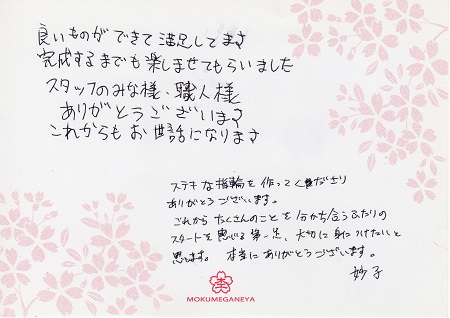 良いものができて満足してます
完成するまでも楽しませてもらいました
スタッフのみな様、職人様
ありがとうございます
これからもお世話になります
ステキな指輪を作ってくださり
ありがとうございます。
これからたくさんのことを分かち合うふたりの
スタートを感じる第一歩、大切に身につけたいと
思います。本当にありがとうございます。
妙子
MOKUMEGANEYA